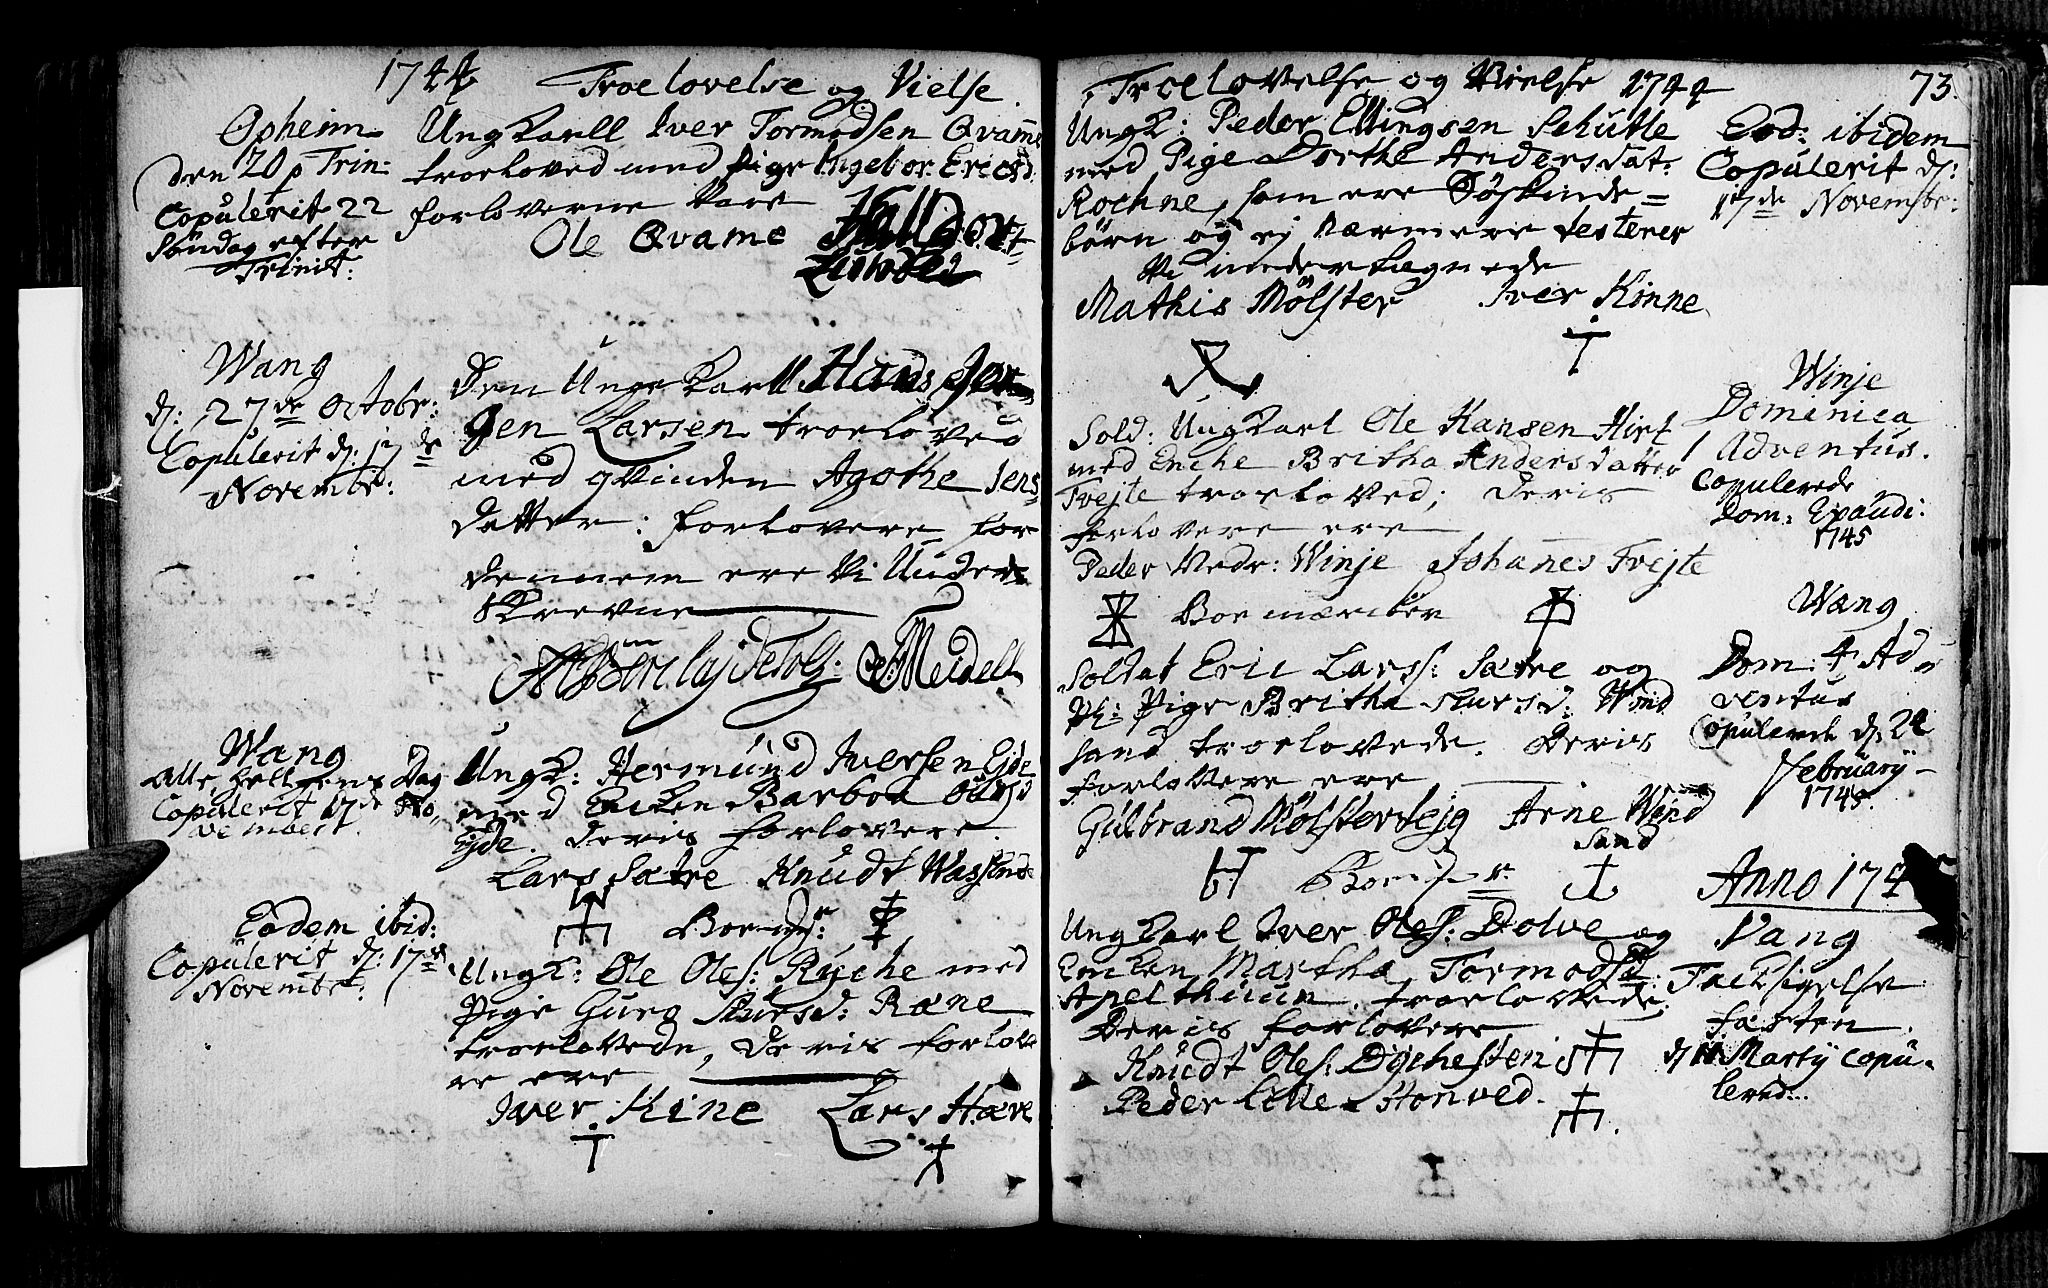 1744 Troelovelse og Vielse.
Opheim
den 20 p Trin:
Copulerit 22
Søndag efter
Trinit:
Ungkarll Iver Tormodsen Qvamme
troeloved med Pige Ingebor Ericsd:
forloverne vare
Ole Qvame Halldor
Wang
d: 27de Octobr:
Copulerit d: 17de
Novembr:
Den Unge Karll Hans Jør
gen Larsen troeloved
med qvinden Agothe Jens
datter: forlovere for
dennem ere Vi Under
skrevne
Meidell
Wang
Alle Helgens Dag
Copulerit 17de No
vembert.
Ungk: Hermund Iversen Ejde
med Encken Barboa Olufsd
Ejde. Deris forlovere
Lars Sætre Knudt Wassende
Eodem ibid:
Copulerit d: 17de
Novembr:
Ungk: Ole Oles: Ryche med
Pige Guro Siursd: Ræne
troelovede, Deris forlove
re ere
Iver Kine Lars Hæve
Troelovelse og Vielse 1744 73.
Ungk: Peder Ellingsen Schutle
med Pige Dorthe Andersdat:
Rochne, som ere Søskinde=
børn og ej nærmere testerer
Vi undertegnede
Mathis Mølster Iver Kinne
Eod: ibidem
Copulerit d:
17de Novembr:
Sold: Ungkarl Ole Hansen Hirt
med Enche Britha Andersdatter
Tvejte troeloved; Deris
forlovere ere
Peder Nedr: Winje Johanes Tvejte
Boemærcker
Winje
Dominica
1 Adventus.
Copulerede
Dom: Epaudi:
1745
Soldat Eric Larss: Sætre og
Pige Britha Siursd: Wind
sand troelovede. Deris
forlovere ere
Gulbrand Mølstertejg Arne Wind
sand
Wang
Dom: 4 Ad
ventus
Copulerede d: 24
February
1745.
Anno 174
Ungkarl Iver Oles: Dolve og
Encken Martha Tormodsd:
Apelthuun. troelovede.
Deris forlovere
Knudt Oles: Dychesten
Peder Lille Honved.
Vang
Tacksigelse
fasten.
d 11 Marty Copu-
lered: